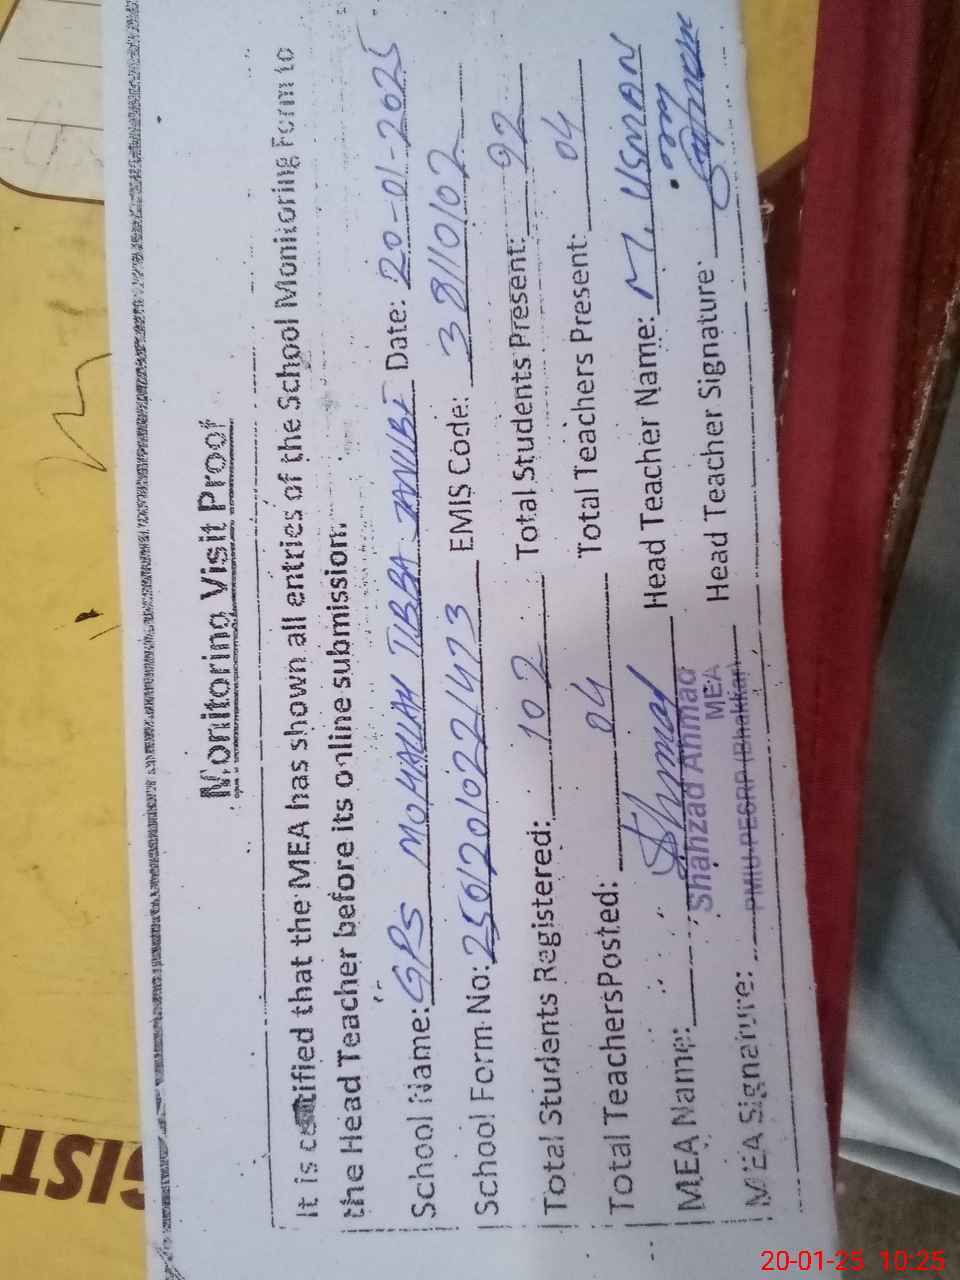 Monitoring Visit Proof
It is certified that the MEA has shown all entries of the School Monitoring Form to
the Head Teacher before its online submission.
School Name: GPS MOHALLAH TIBBA JANUBI Date: 20-01-2025
School Form No: 2501201022/1473 EMIS Code: 38110102
Total Students Registered: 102 Total Students Present: 92
Total TeachersPosted: 04 Total Teachers Present: 04
MEA Name: Head Teacher Name: M. USMAN
Shahzad Ahmad
MEA
MEA Signature: Head Teacher Signature
PMIU-PESRP (Bhakkar)
GIST
20-01-25 10:25